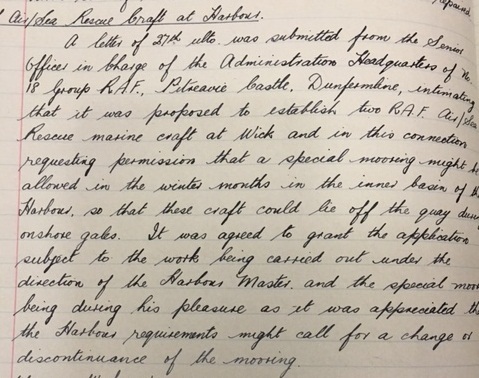 repaird
Air/Sea Rescue Craft at Harbour.
A letter of 27th ulto. was submitted from the Senior
Officer in Charge of the Administration Headquarters of No.
18 Group R.A.F., Pitreavie Castle, Dunfermline, intimating
that it was proposed to establish two R.A.F. Air/Sea
Rescue marine craft at Wick and in this connection
requesting permission that a special mooring might be
allowed in the winter months in the inner basin of th
Harbour, so that these craft could lie off the quay durin
onshore gales. It was agreed to grant the application
subject to the work being carried out under the
direction of the Harbour Master, and the special moor
being during his pleasure as it was appreciated th
the Harbour requirements might call for a change or
discontinuance of the mooring.